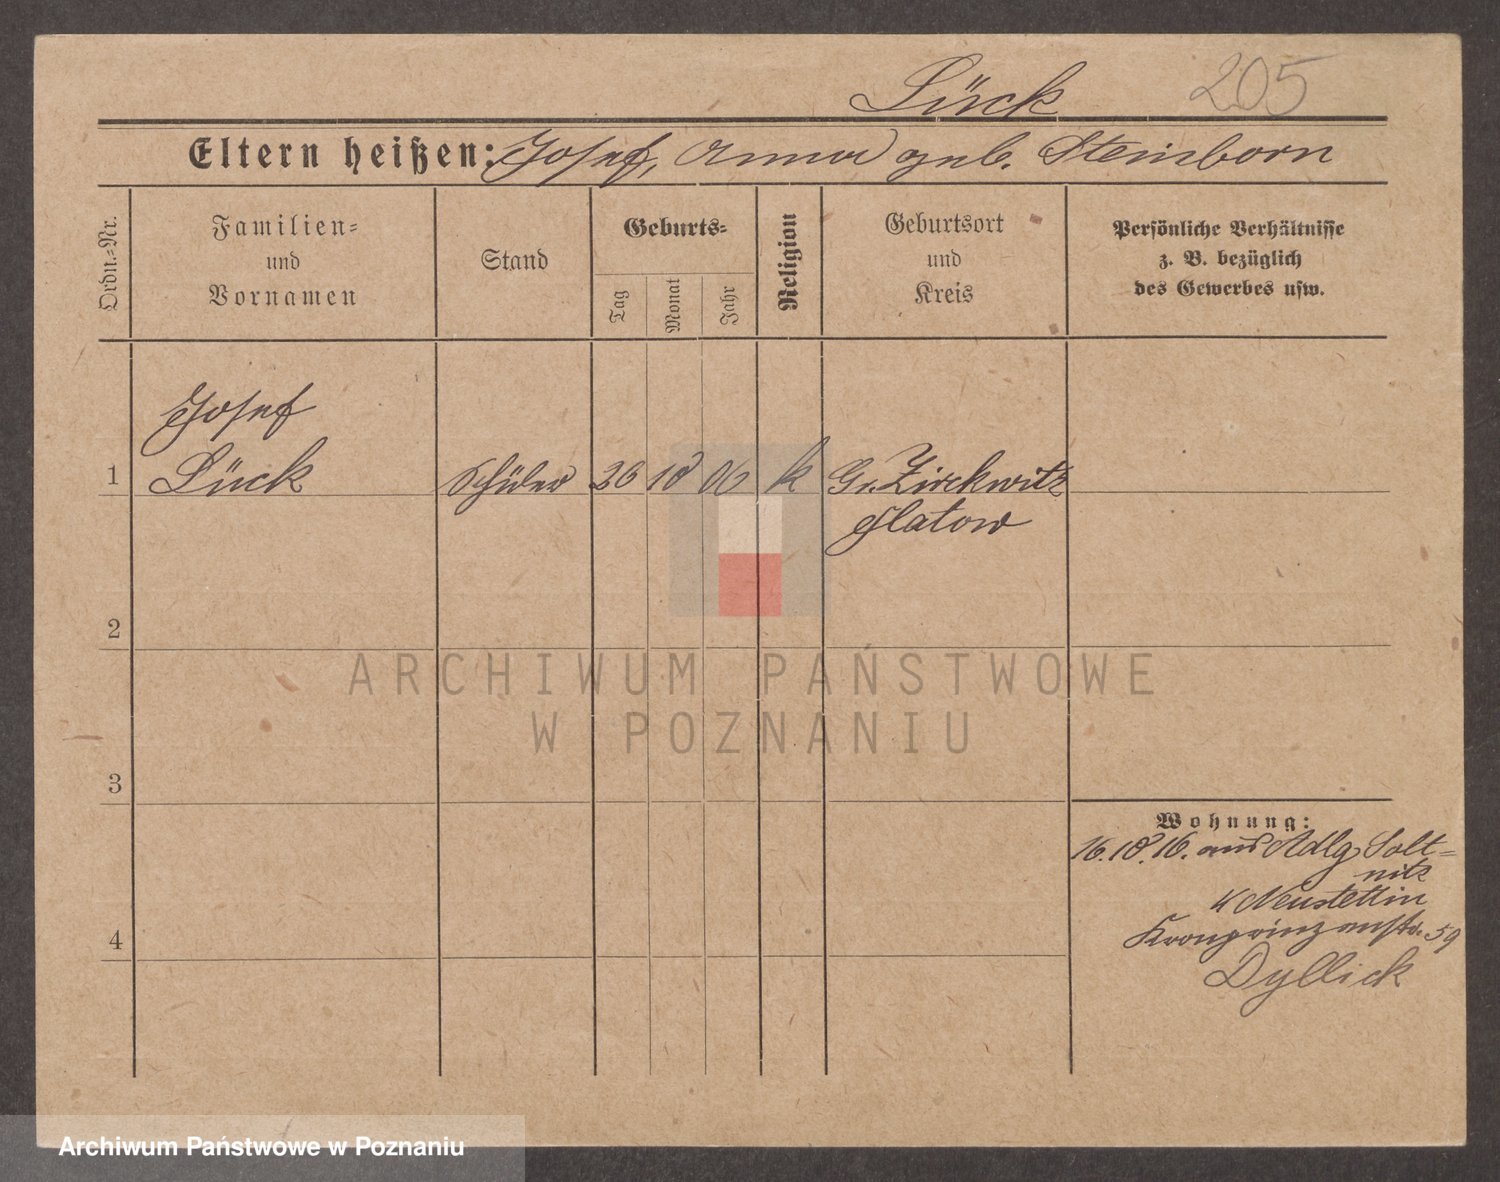 Lück 205
Eltern heißen: Josef, Anna geb. Steinborn
Ordn.-Nr.
Familien-
und
Vornamen
Stand
Geburts-
Tag
Monat
Jahr
Religion
Geburtsort
und
Kreis
Persönliche Verhältnisse
z. B. bezüglich
des Gewerbes usw.
Josef
1 Lück Schüler 26 10 06 k Gr. Zirkwitz
Flatow
2
ARCHIWUM PAŃSTWOWE
W POZNANIU
3
Wohnung:
16.10.16. aus Adlg Solt-
nitz
Neustettin
4
Kronprinzenstr. 59
Dyllick
Archiwum Państwowe w Poznaniu